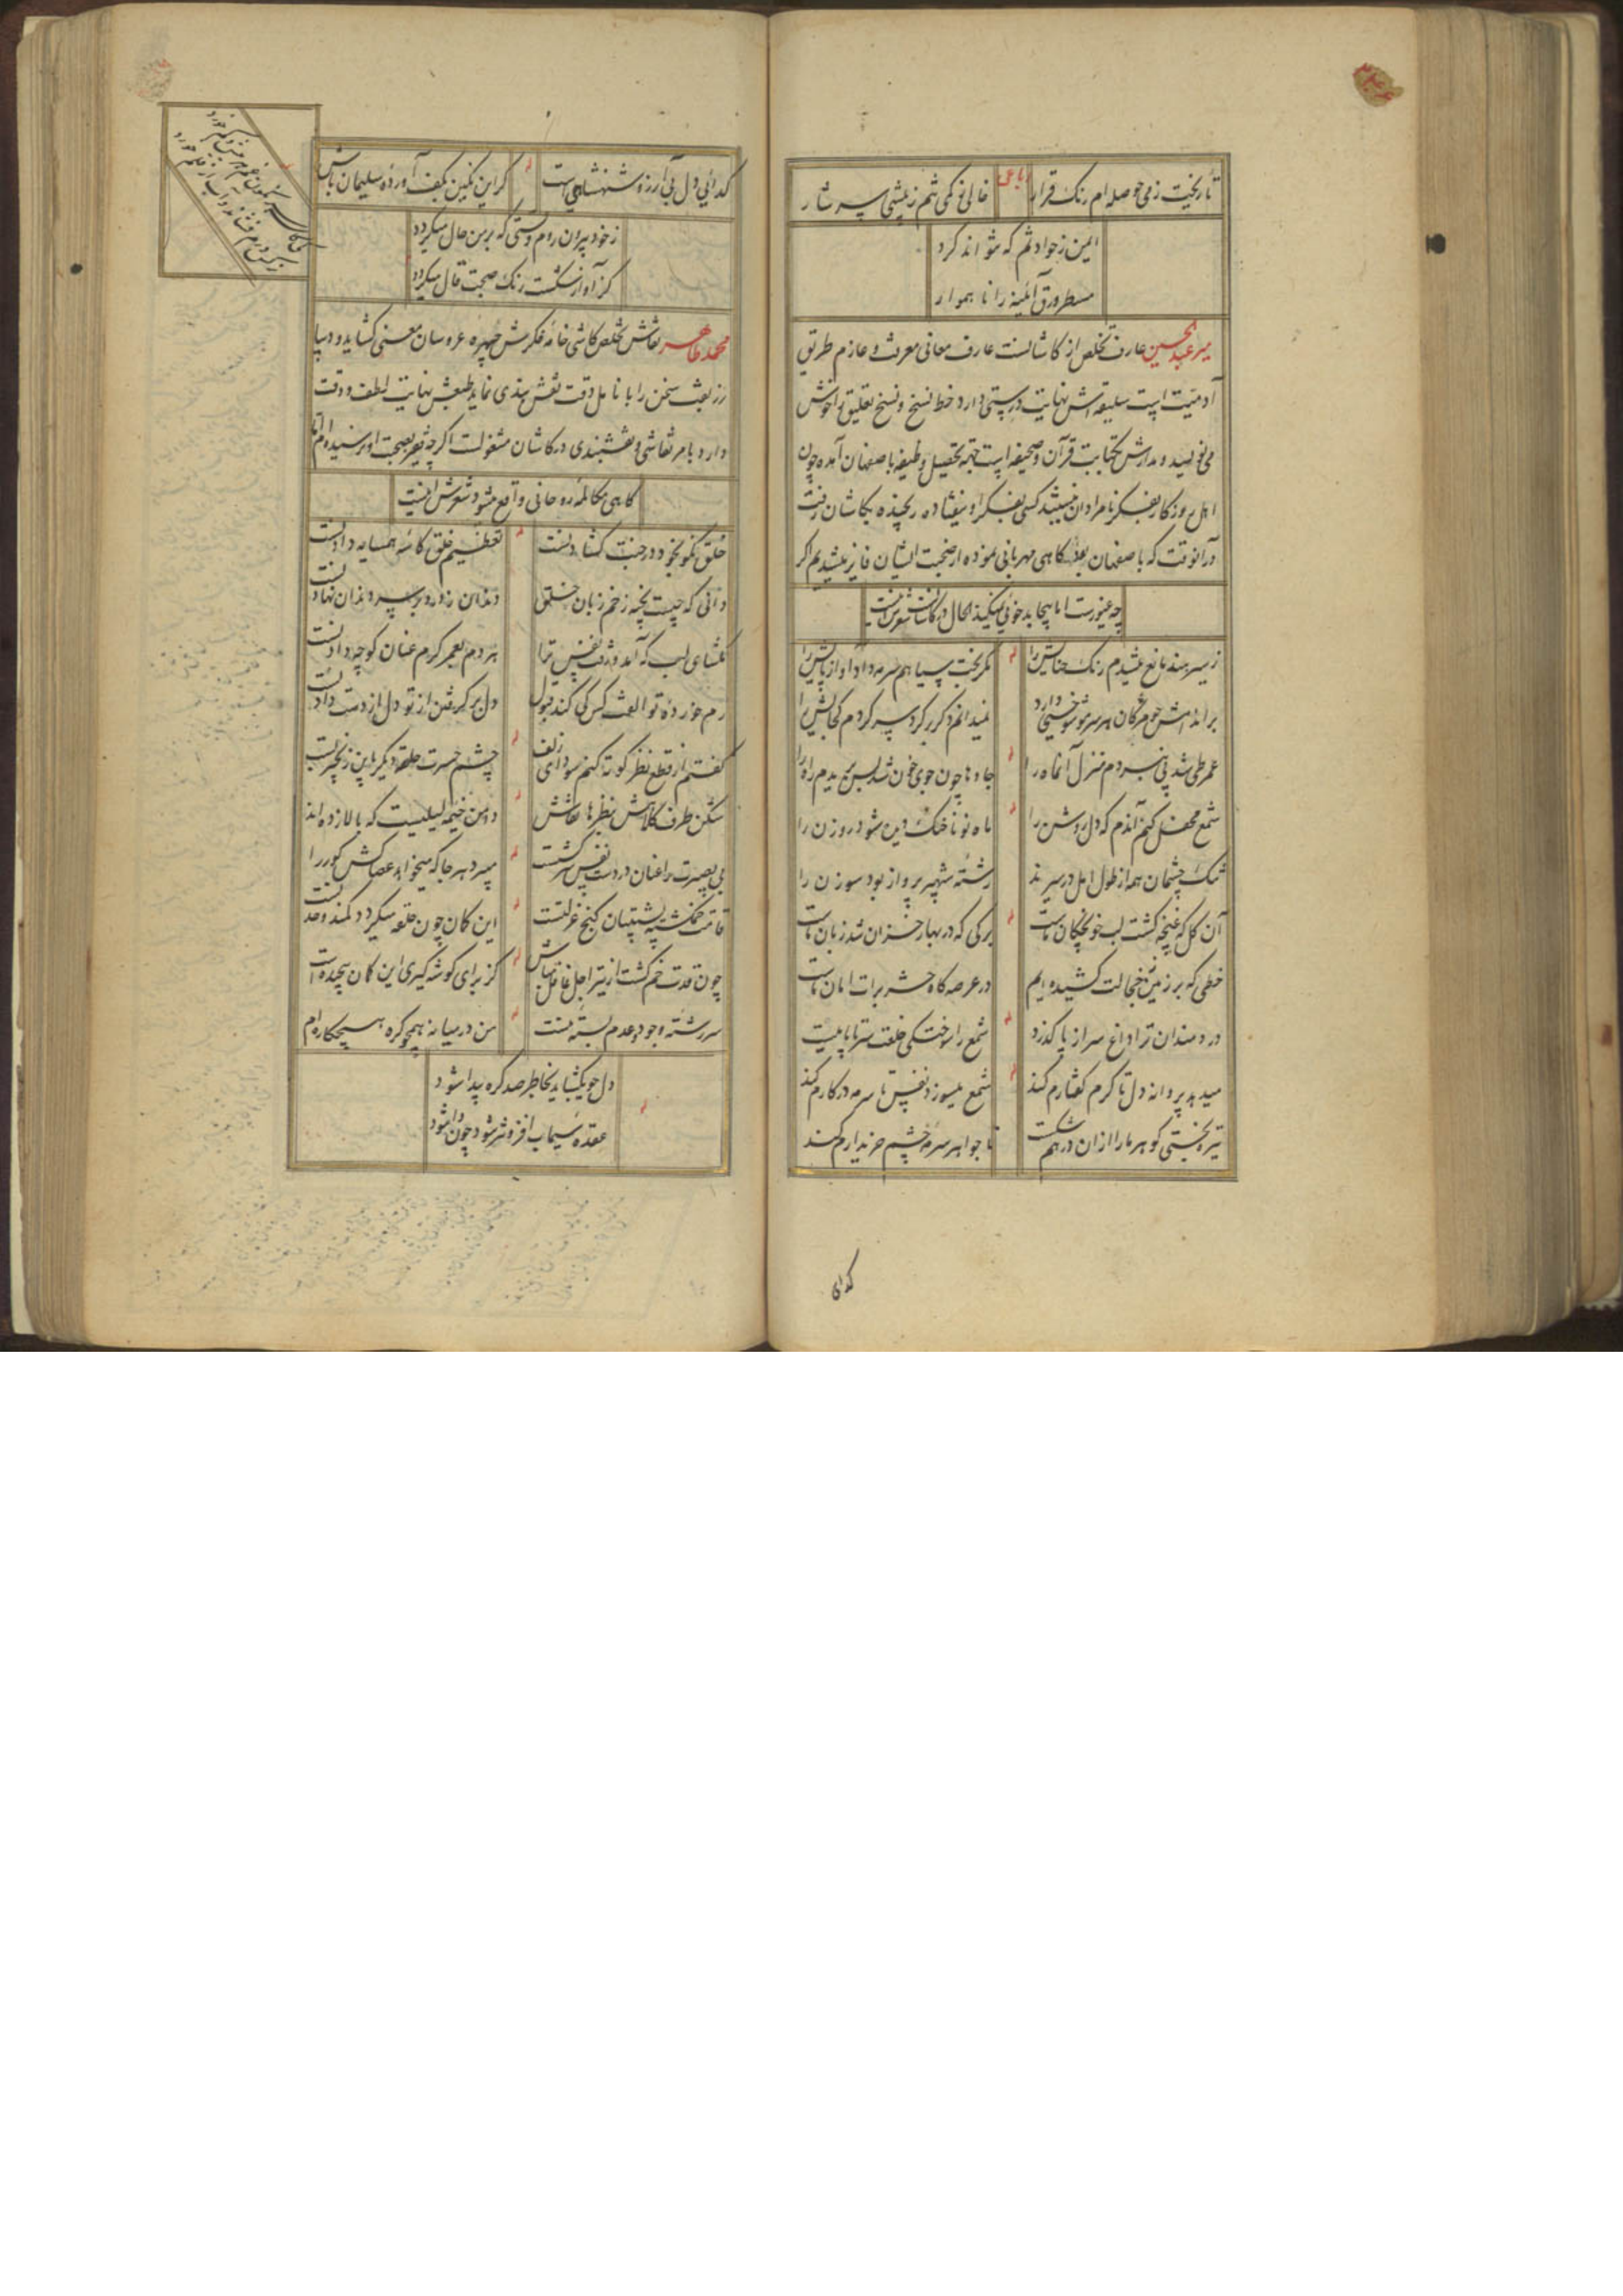 تا ریخت ز می حوصله ام رنگ قرار
رباعی
خالی نه کمی شم ز بیشی سرشار
ایمن ز حوادثم که نتواند کرد
مسطر ورق آینه را ناهموار
میر عبدالحسین عارف تخلص از کاشانست عارف معانی معرفت و عازم طریق
آدمیت است سلیقه اش نهایت درستی دارد خط نسخ و نسخ تعلیق را خوش
می نویسد و مدارش بکتابت قرآن و صحیفه است جهة تحصیل وظیفه باصفهان آمده چون
اهل روزگار بفکر نامرادان نیستند کسی بفکر او نیفتاده رنجیده بکاشان رفت
در آنوقت که باصفهان بود گاهی مهربانی نموده از صحبت ایشان فایز میشدیم اگر
چه غیورست اما بیجا بدخوئی نمیکند الحال در کاشانست شعرش اینست
ز سیر هند مانع میشدم رنگ حنایش را
مگر بخت سیاهم سرمه داد آواز پایش را
بر اندامش چو مژگان هر سر مو شوخیی دارد
نمیدانم دگر بر گرد سر گردم کجایش را
عمر طی شد پی نبردم منزل آن ماه را
جاده ها چون جوی خون شد بس بریدم راه را
شمع محفل کنم آندم که دل روشن را
ماه نو ناخنک دیده شود روزن را
تنگ چشمان همه از طول امل در سیرند
رشته شهپر پرواز بود سوزن را
آن گل که غنچه گشت لب خونچکان ماست
برگی که در بهار خزان شد زبان ماست
خطی که بر زمین خجالت کشیده ایم
در عرصه گاه حشر برات امان ماست
دردمندان ترا داغ سر از پا گذرد
شمع را سوختگی خلعت سر تا پاییست
میدهد پروانه دل تا گرم گفتارم کند
شمع میسوزد نفس تا سرمه در کارم کند
تیره بختی گوهر ما را از آن در هم شکست
تا جواهر سرمه چشم خریدارم کند
گدائی
گدائی دل بی آرزو شهنشاهیست
گر این نگین بکف آورده سلیمان باش
ز خود بیرون روم وقتی که بر من حال میگردد
کز آواز شکست رنگ صحبت قال میگردد
محمد طاهر نقاش تخلص کاشی خامه فکرش چهره عروسان معنی گشاید و دیبا
زربفت سخن را با نامل دقت نقش بندی نماید طبعش نهایت لطف و دقت
دارد بامر نقاشی و نقشبندی در کاشان مشغولست اگرچه فقیر بصحبت او نرسیده ام اما
گاهی مکالمه روحانی واقع میشود شعرش اینست
خلق نکو بخود در جنت گشادنست
تعظیم خلق کاسه همسایه دادنست
دانی که چیست بخیه زخم زبان خلق
دندان ز درد بر سر دندان نهادنست
مگشای لب که آمد و رفت نفس ترا
هر دم بعمر گرم عنان کوچه دادنست
رم خورده تو الفت کس کی کند قبول
دل برگرفتن از تو دل از دست دادنست
گفتم از قطع نظر کوته کنم سودای زلف
چشم حسرت حلقه دیگر باین زنجیر بست
شکن طرف کلاهش بنظرها نقاش
دامن خیمه لیلیست که بالا زده اند
بی بصیرت را عنان در دست نفس سرکشست
میبرد هر جا که میخواهد عصاکش کور را
قامت خم گشته پشتیبان کنج عزلتست
این کمان چون حلقه میگردد کمند وحدتست
چون قدت خم گشت از تیر اجل غافل مباش
کز برای گوشه گیری این کمان پیچیده است
سر رشته وجود و عدم بسته منست
من در میانه همچو گره هیچکاره ام
دل چو بگشاید بخاطر صد گره پیدا شود
عقده سیماب افزونتر شود چون وا شود